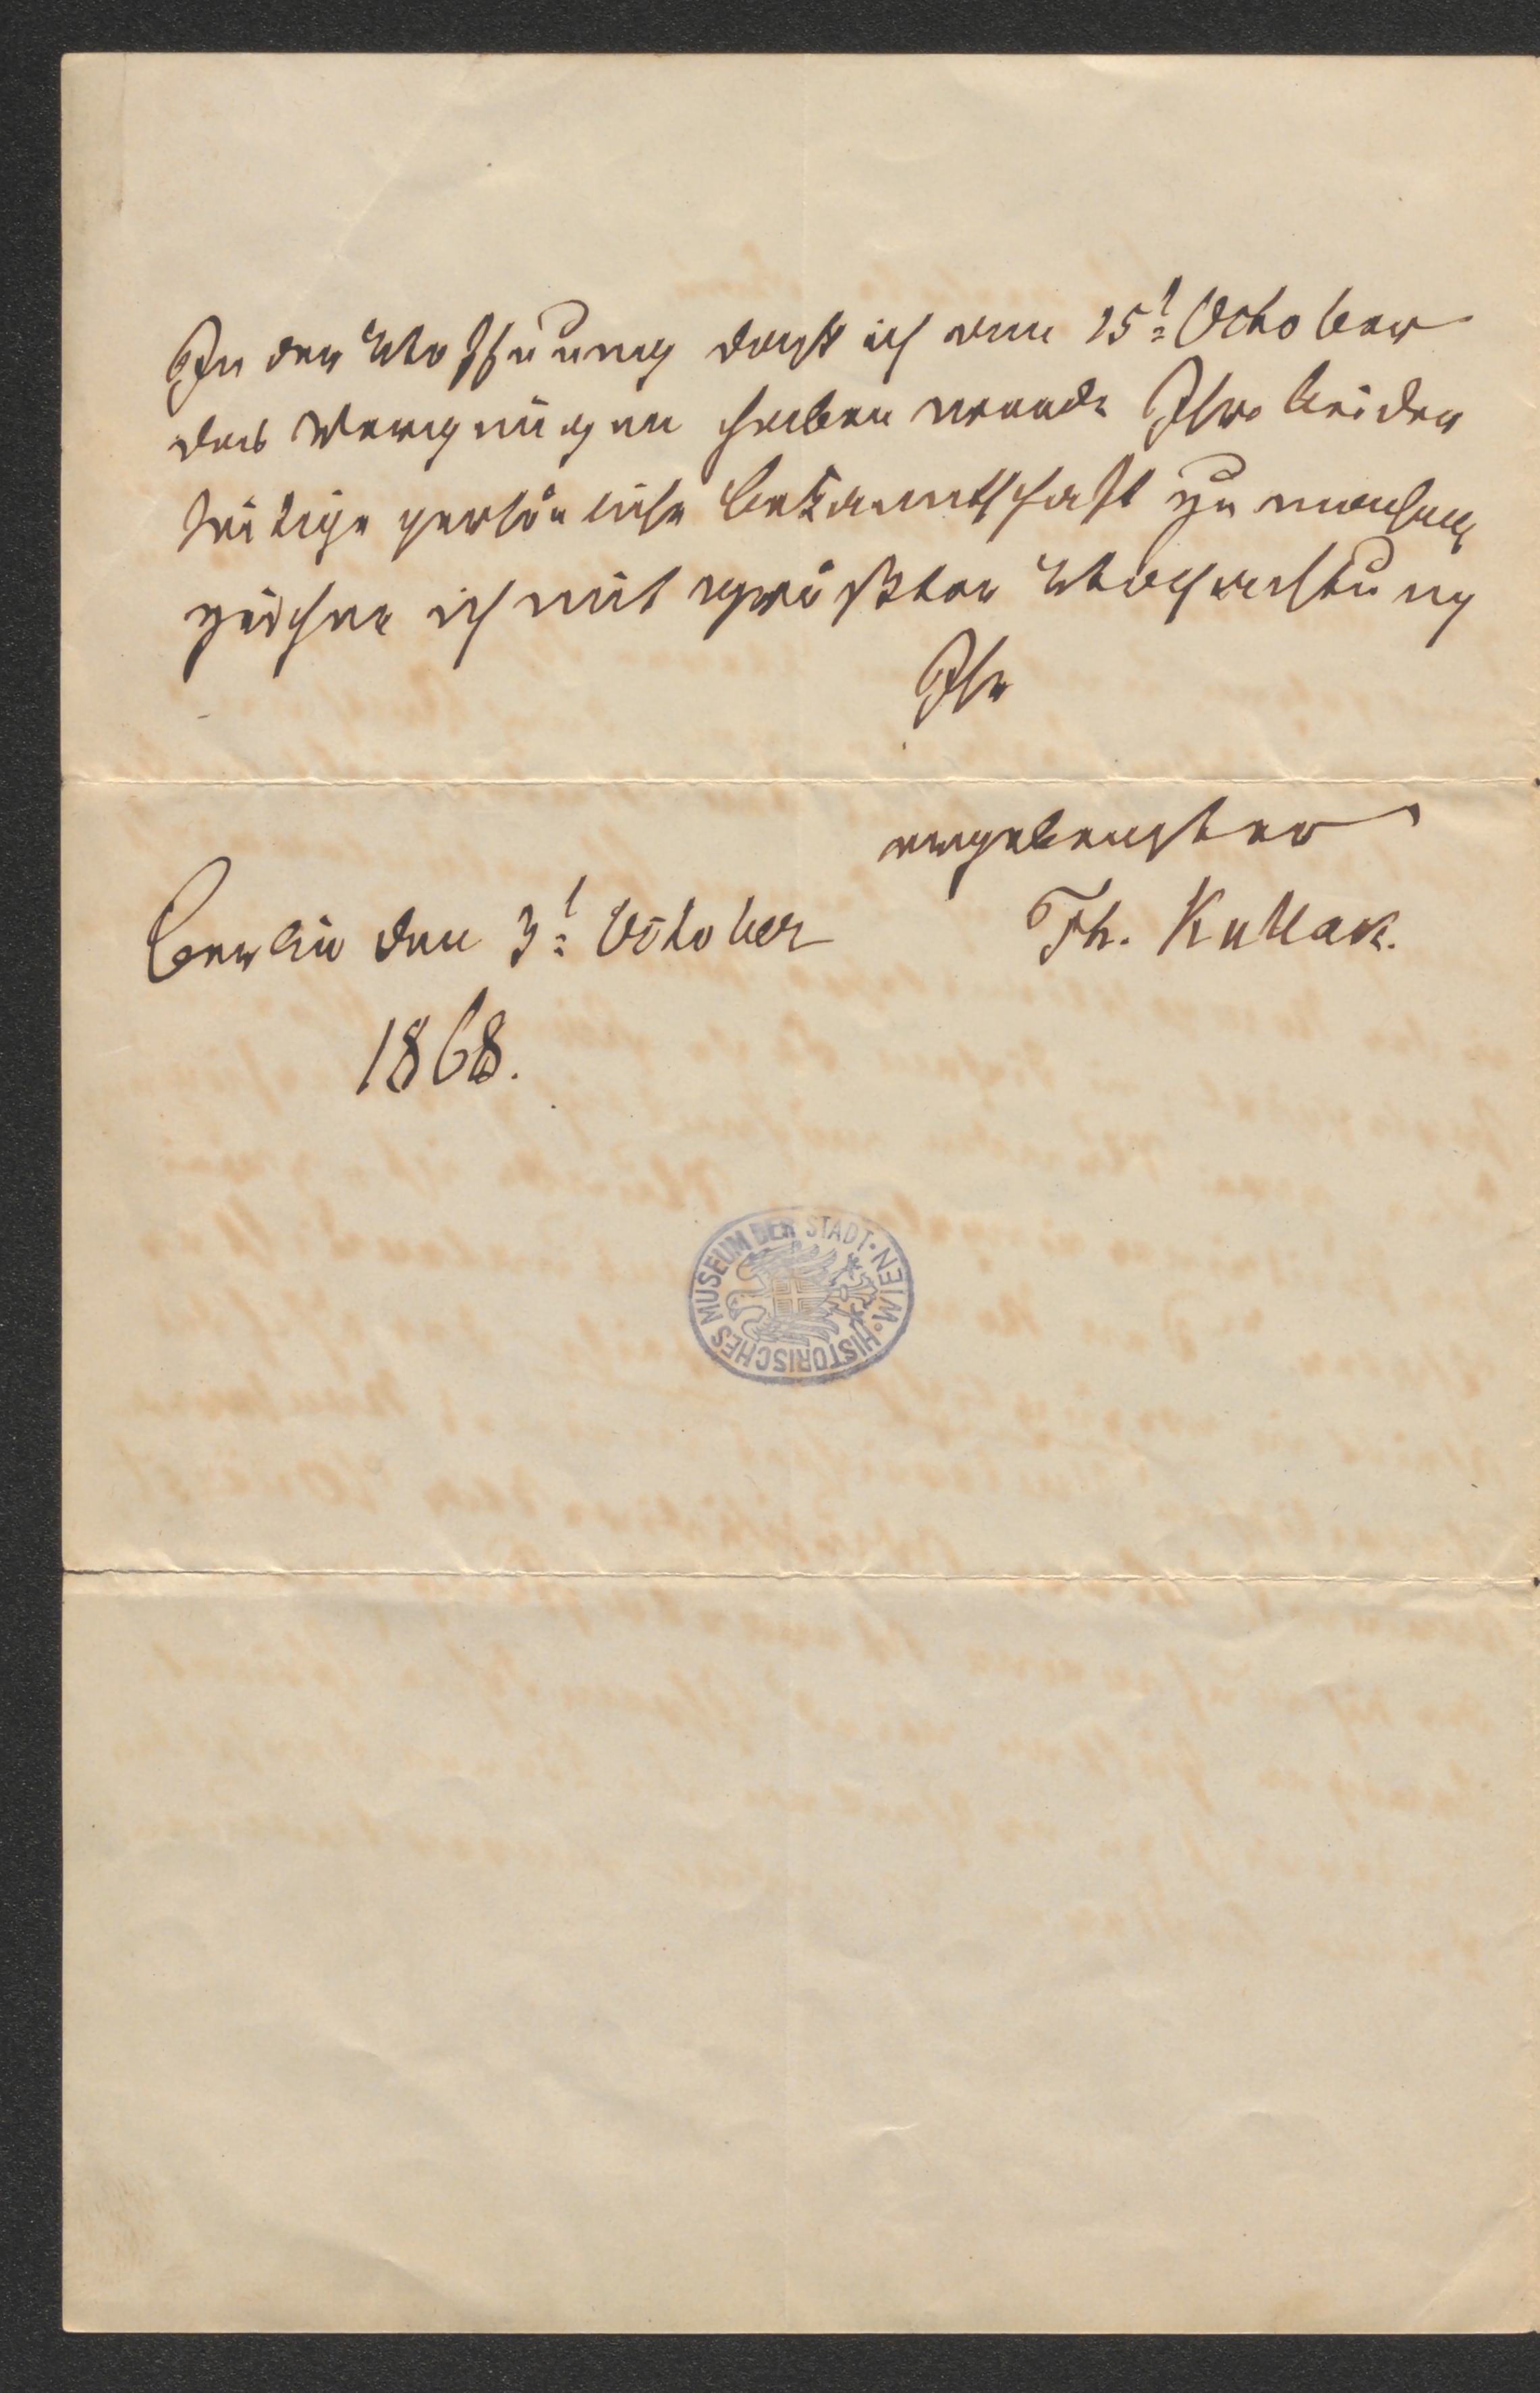 In der Hoffnung daß ich am 15t October
das Vergnügen haben werde Ihre beider
seitige persönliche Bekanntschaft zu machen,
zeichne ich mit größter Hochachtung
Ihr
ergebenster
Berlin den 3t October
Th. Kullak.
1868.
HISTORISCHES MUSEUM DER STADT · WIEN ·